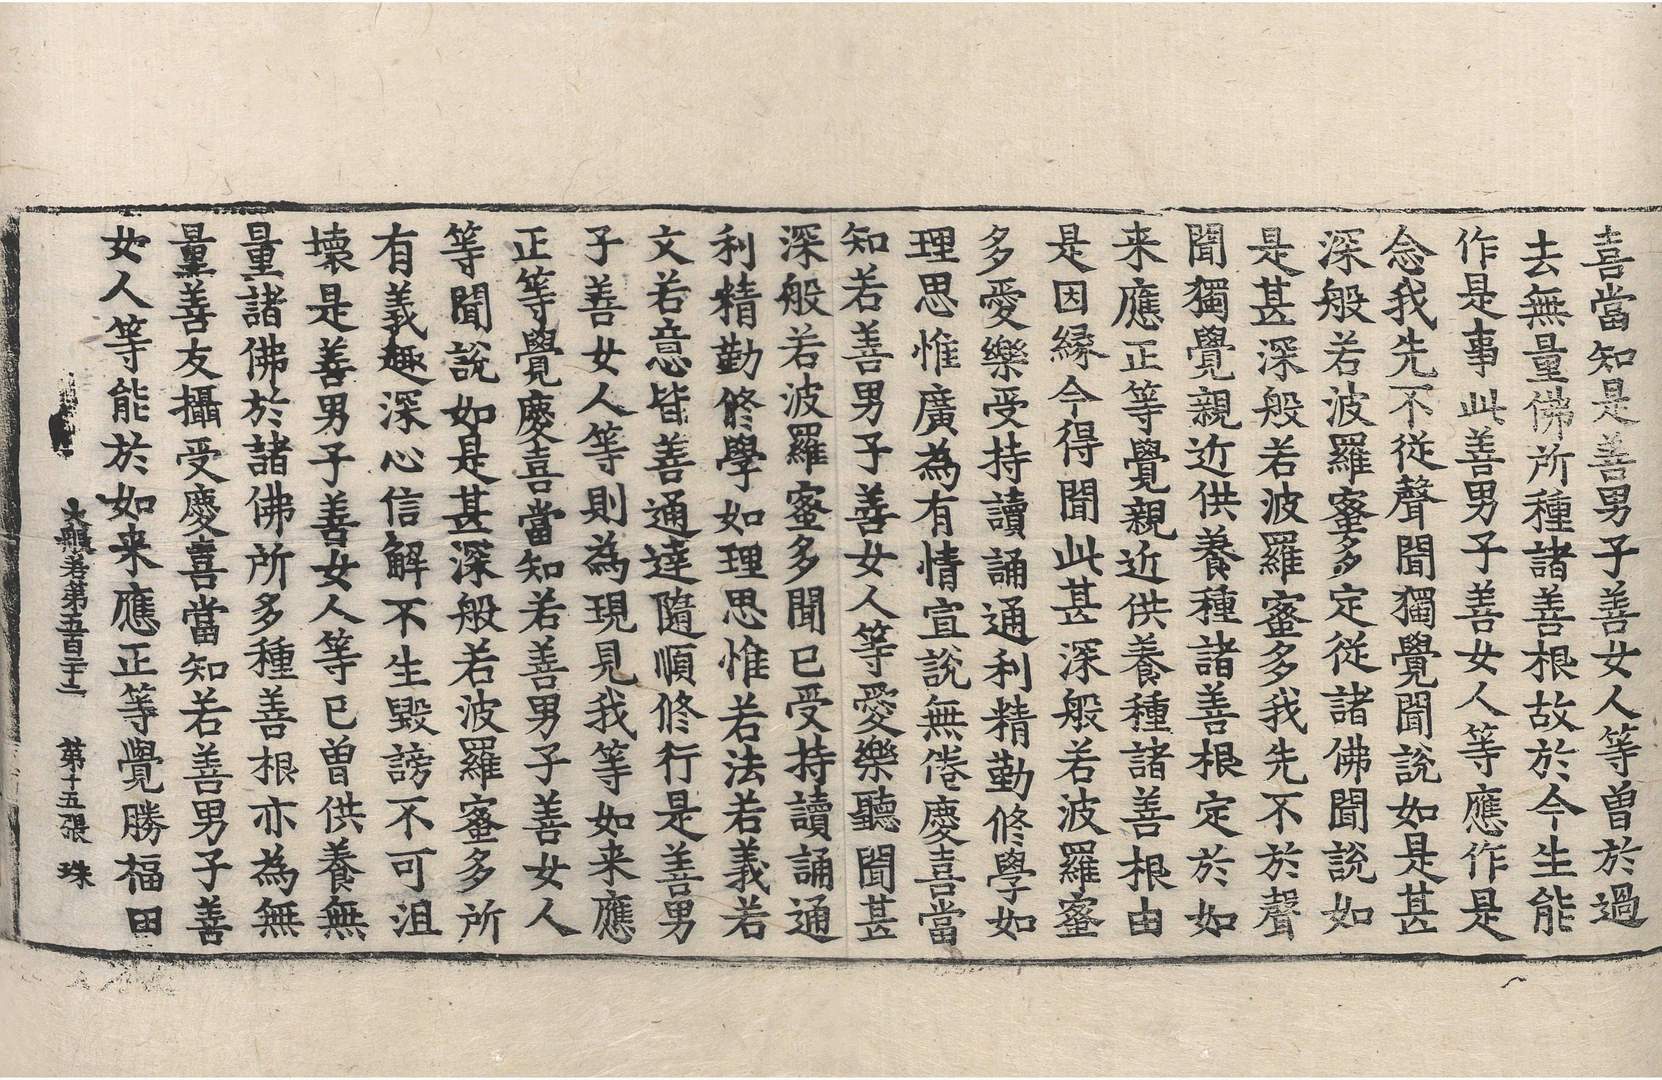 喜當知是善男子善女人等曾於過
去無量佛所種諸善根故於今生能
作是事此善男子善女人等應作是
念我先不從聲聞獨覺聞說如是甚
深般若波羅蜜多定從諸佛聞說如
是甚深般若波羅蜜多我先不於聲
聞獨覺親近供養種諸善根定於如
来應正等覺親近供養種諸善根由
是因緣今得聞此甚深般若波羅蜜
多愛樂受持讀誦通利精勤修學如
理思惟廣為有情宣說無倦慶喜當
知若善男子善女人等愛樂聽聞甚
深般若波羅蜜多聞已受持讀誦通
利精勤修學如理思惟若法若義若
文若意皆善通達隨順修行是善男
子善女人等則為現見我等如来應
正等覺慶喜當知若善男子善女人
等聞說如是甚深般若波羅蜜多所
有義趣深心信解不生毀謗不可沮
壞是善男子善女人等已曾供養無
量諸佛於諸佛所多種善根亦為無
量善友攝受慶喜當知若善男子善
女人等能於如来應正等覺勝福田
大般若第五百二十二 第十五張 珠